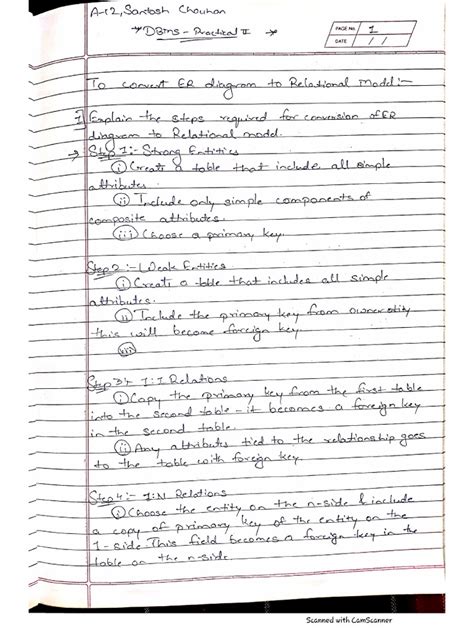 A-12, Santosh Chouhan
DBMS - Practical II
PAGE No. 1
DATE / /
To convert ER diagram to Relational Model:-
1] Explain the steps required for conversion of ER
diagram to Relational model.
→ Step 1:- Strong Entities
(i) Create a table that include all simple
attributes.
(ii) Include only simple components of
composite attributes.
(iii) Choose a primary key.
Step 2:- Weak Entities
(i) Create a table that includes all simple
attributes.
(ii) Include the primary key from owner entity
this will become foreign key.
(iii)
Step 3:- 1:1 Relations
(i) Copy the primary key from the first table
into the second table - it becomes a foreign key
in the second table.
(ii) Any attributes tied to the relationship goes
to the table with foreign key.
Step 4:- 1:N Relations
(i) Choose the entity on the n-side & include
a copy of primary key of the entity on the
1-side This field becomes a foreign key in the
table on the n-side.
Scanned with CamScanner